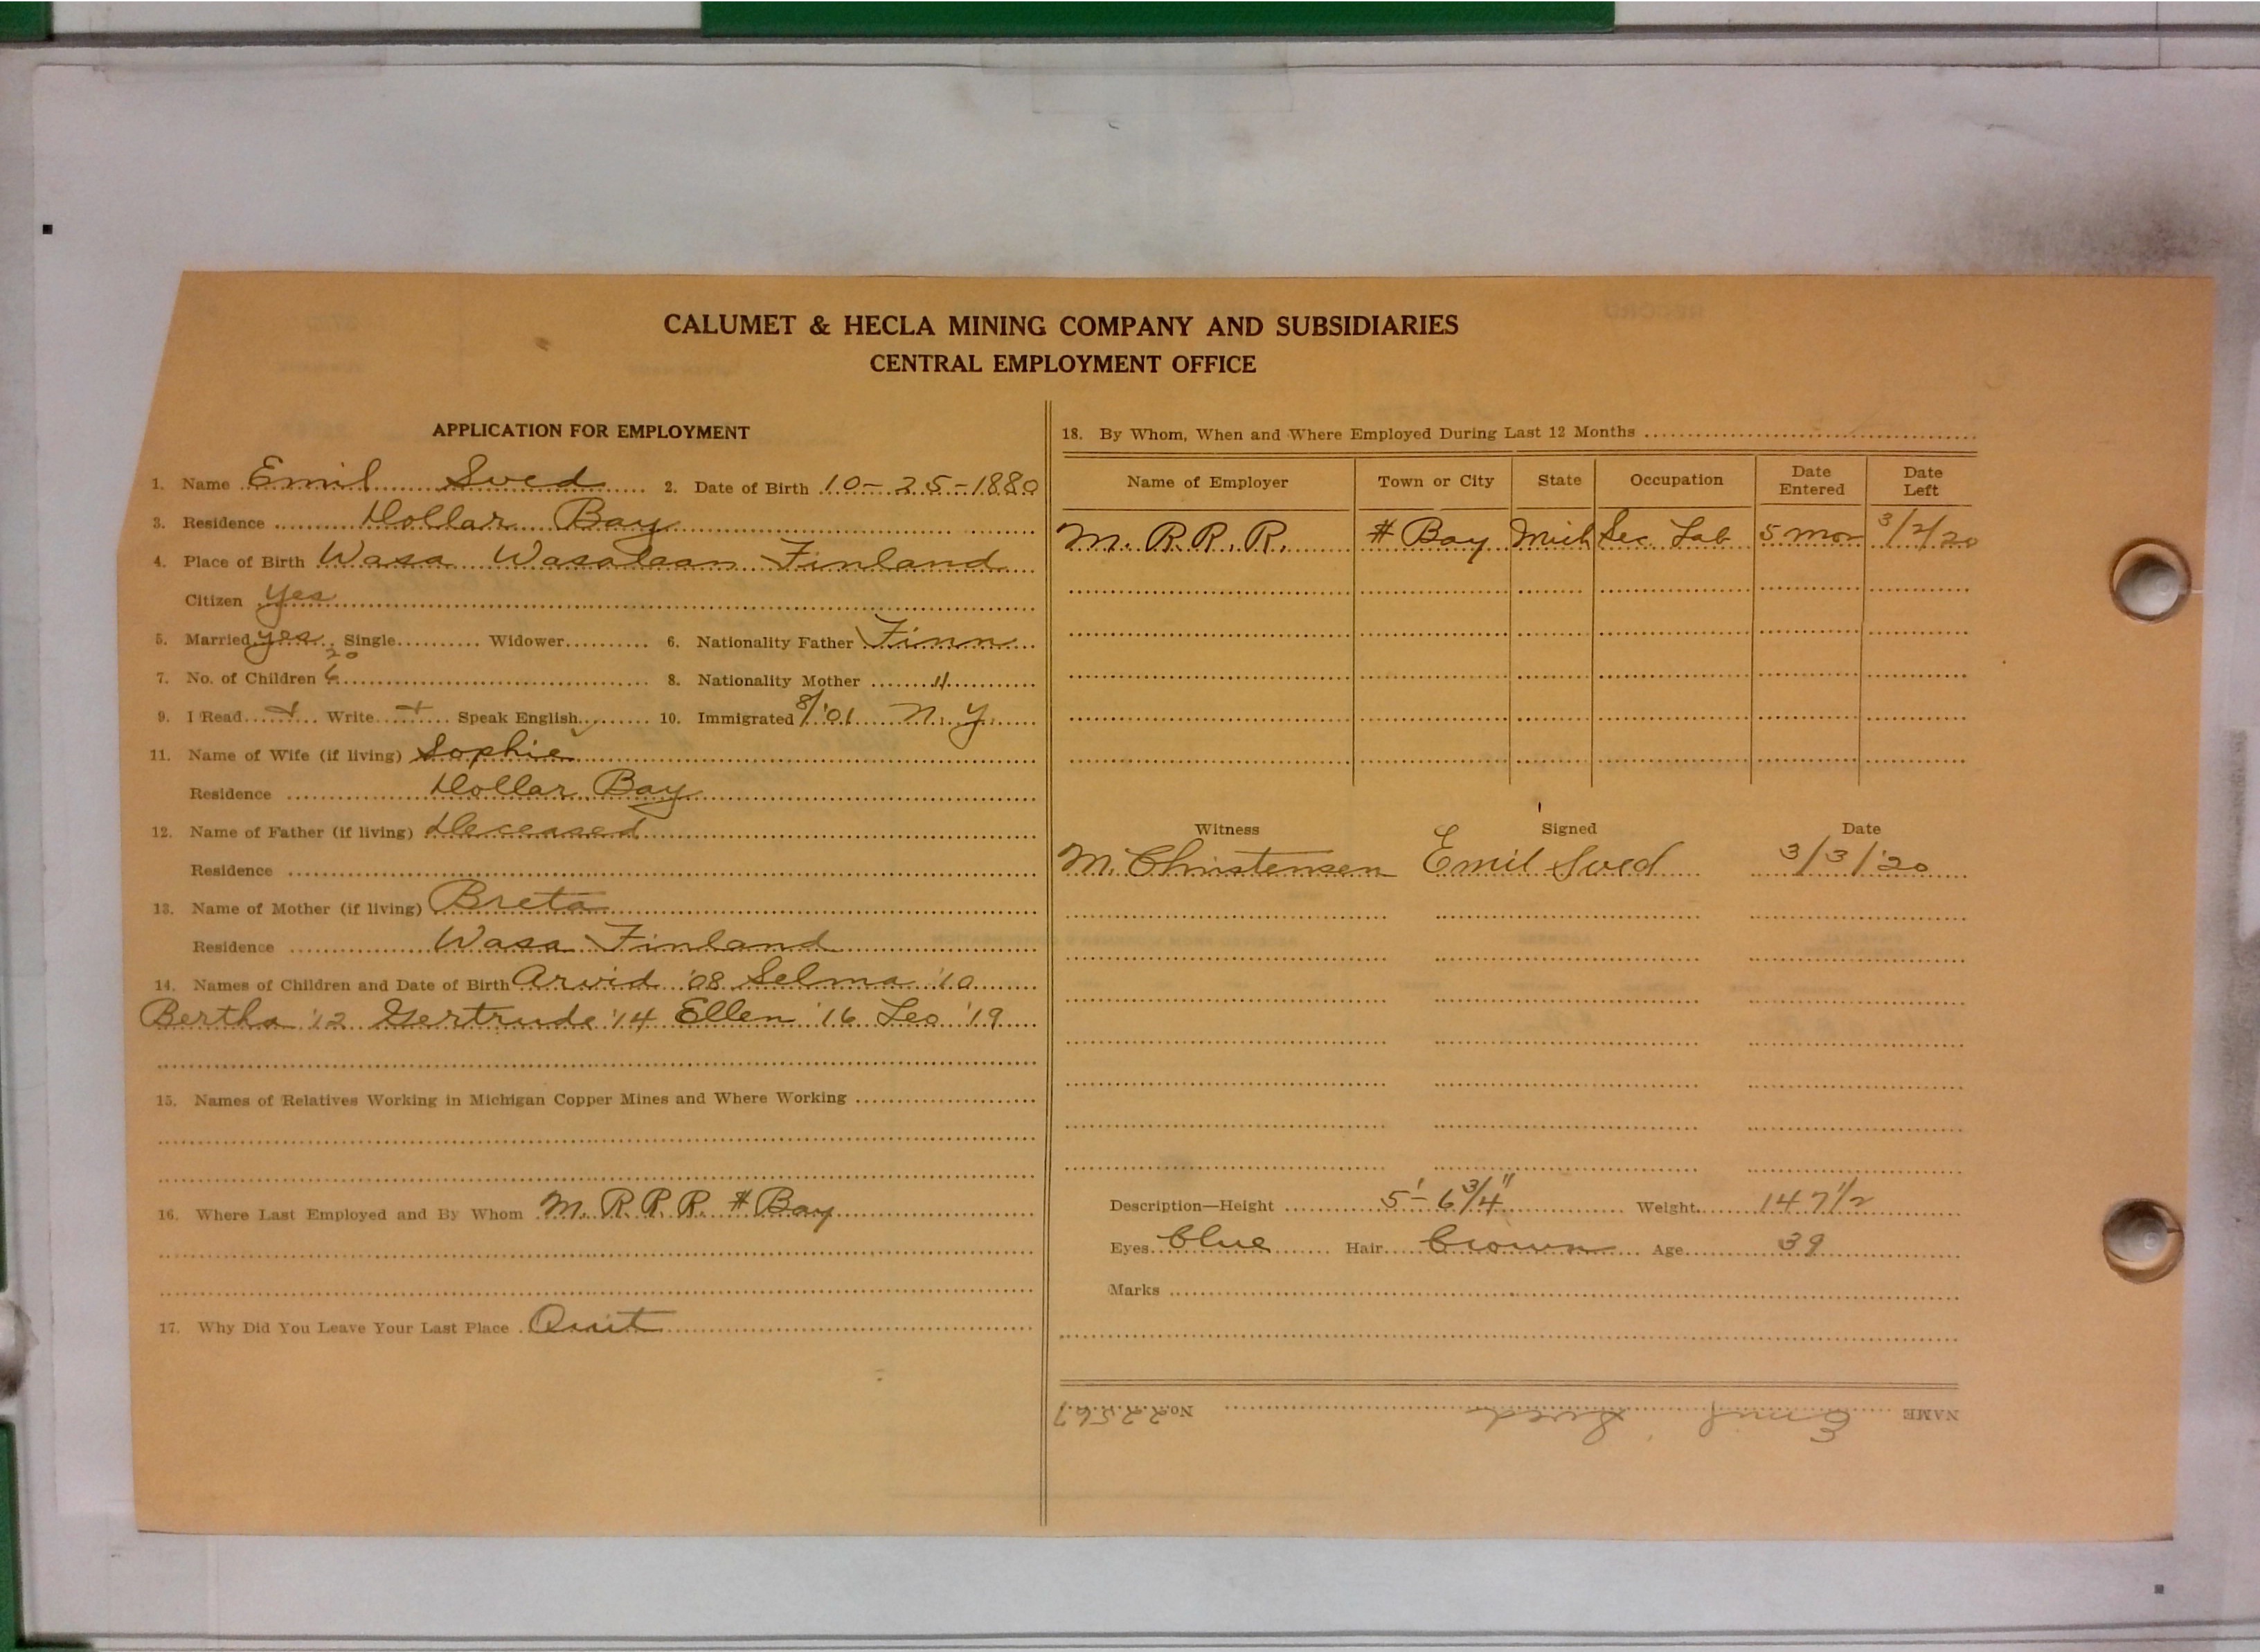 CALUMET & HECLA MINING COMPANY AND SUBSIDIARIES
CENTRAL EMPLOYMENT OFFICE
APPLICATION FOR EMPLOYMENT
1. Name Emil Sved 2. Date of Birth 10-25-1880
3. Residence Dollar Bay
4. Place of Birth Wasa Wasalaan Finland
Citizen yes
5. Married yes Single Widower 6. Nationality Father Finn
20
7. No. of Children 6 8. Nationality Mother "
9. I Read + Write + Speak English ✓ 10. Immigrated 8/'01 N.Y.
11. Name of Wife (if living) Sophie
Residence Dollar Bay
12. Name of Father (if living) Deceased
Residence
13. Name of Mother (if living) Breta
Residence Wasa Finland
14. Names of Children and Date of Birth Arvid '08 Selma '10
Bertha '12 Gertrude '14 Ellen '16 Leo '19
15. Names of Relatives Working in Michigan Copper Mines and Where Working
16. Where Last Employed and By Whom M. R. R. R. # Bay
17. Why Did You Leave Your Last Place Quit
18. By Whom, When and Where Employed During Last 12 Months
Name of Employer Town or City State Occupation Date Entered Date Left
M. R. R. R. # Bay Mich Sec Lab 5 mos 3/2/20
Witness Signed Date
M. Christensen Emil Sved 3/3/'20
Description—Height 5'-6 3/4" Weight 147 1/2
Eyes blue Hair brown Age 39
Marks
NAME Emil Sved No. 22567